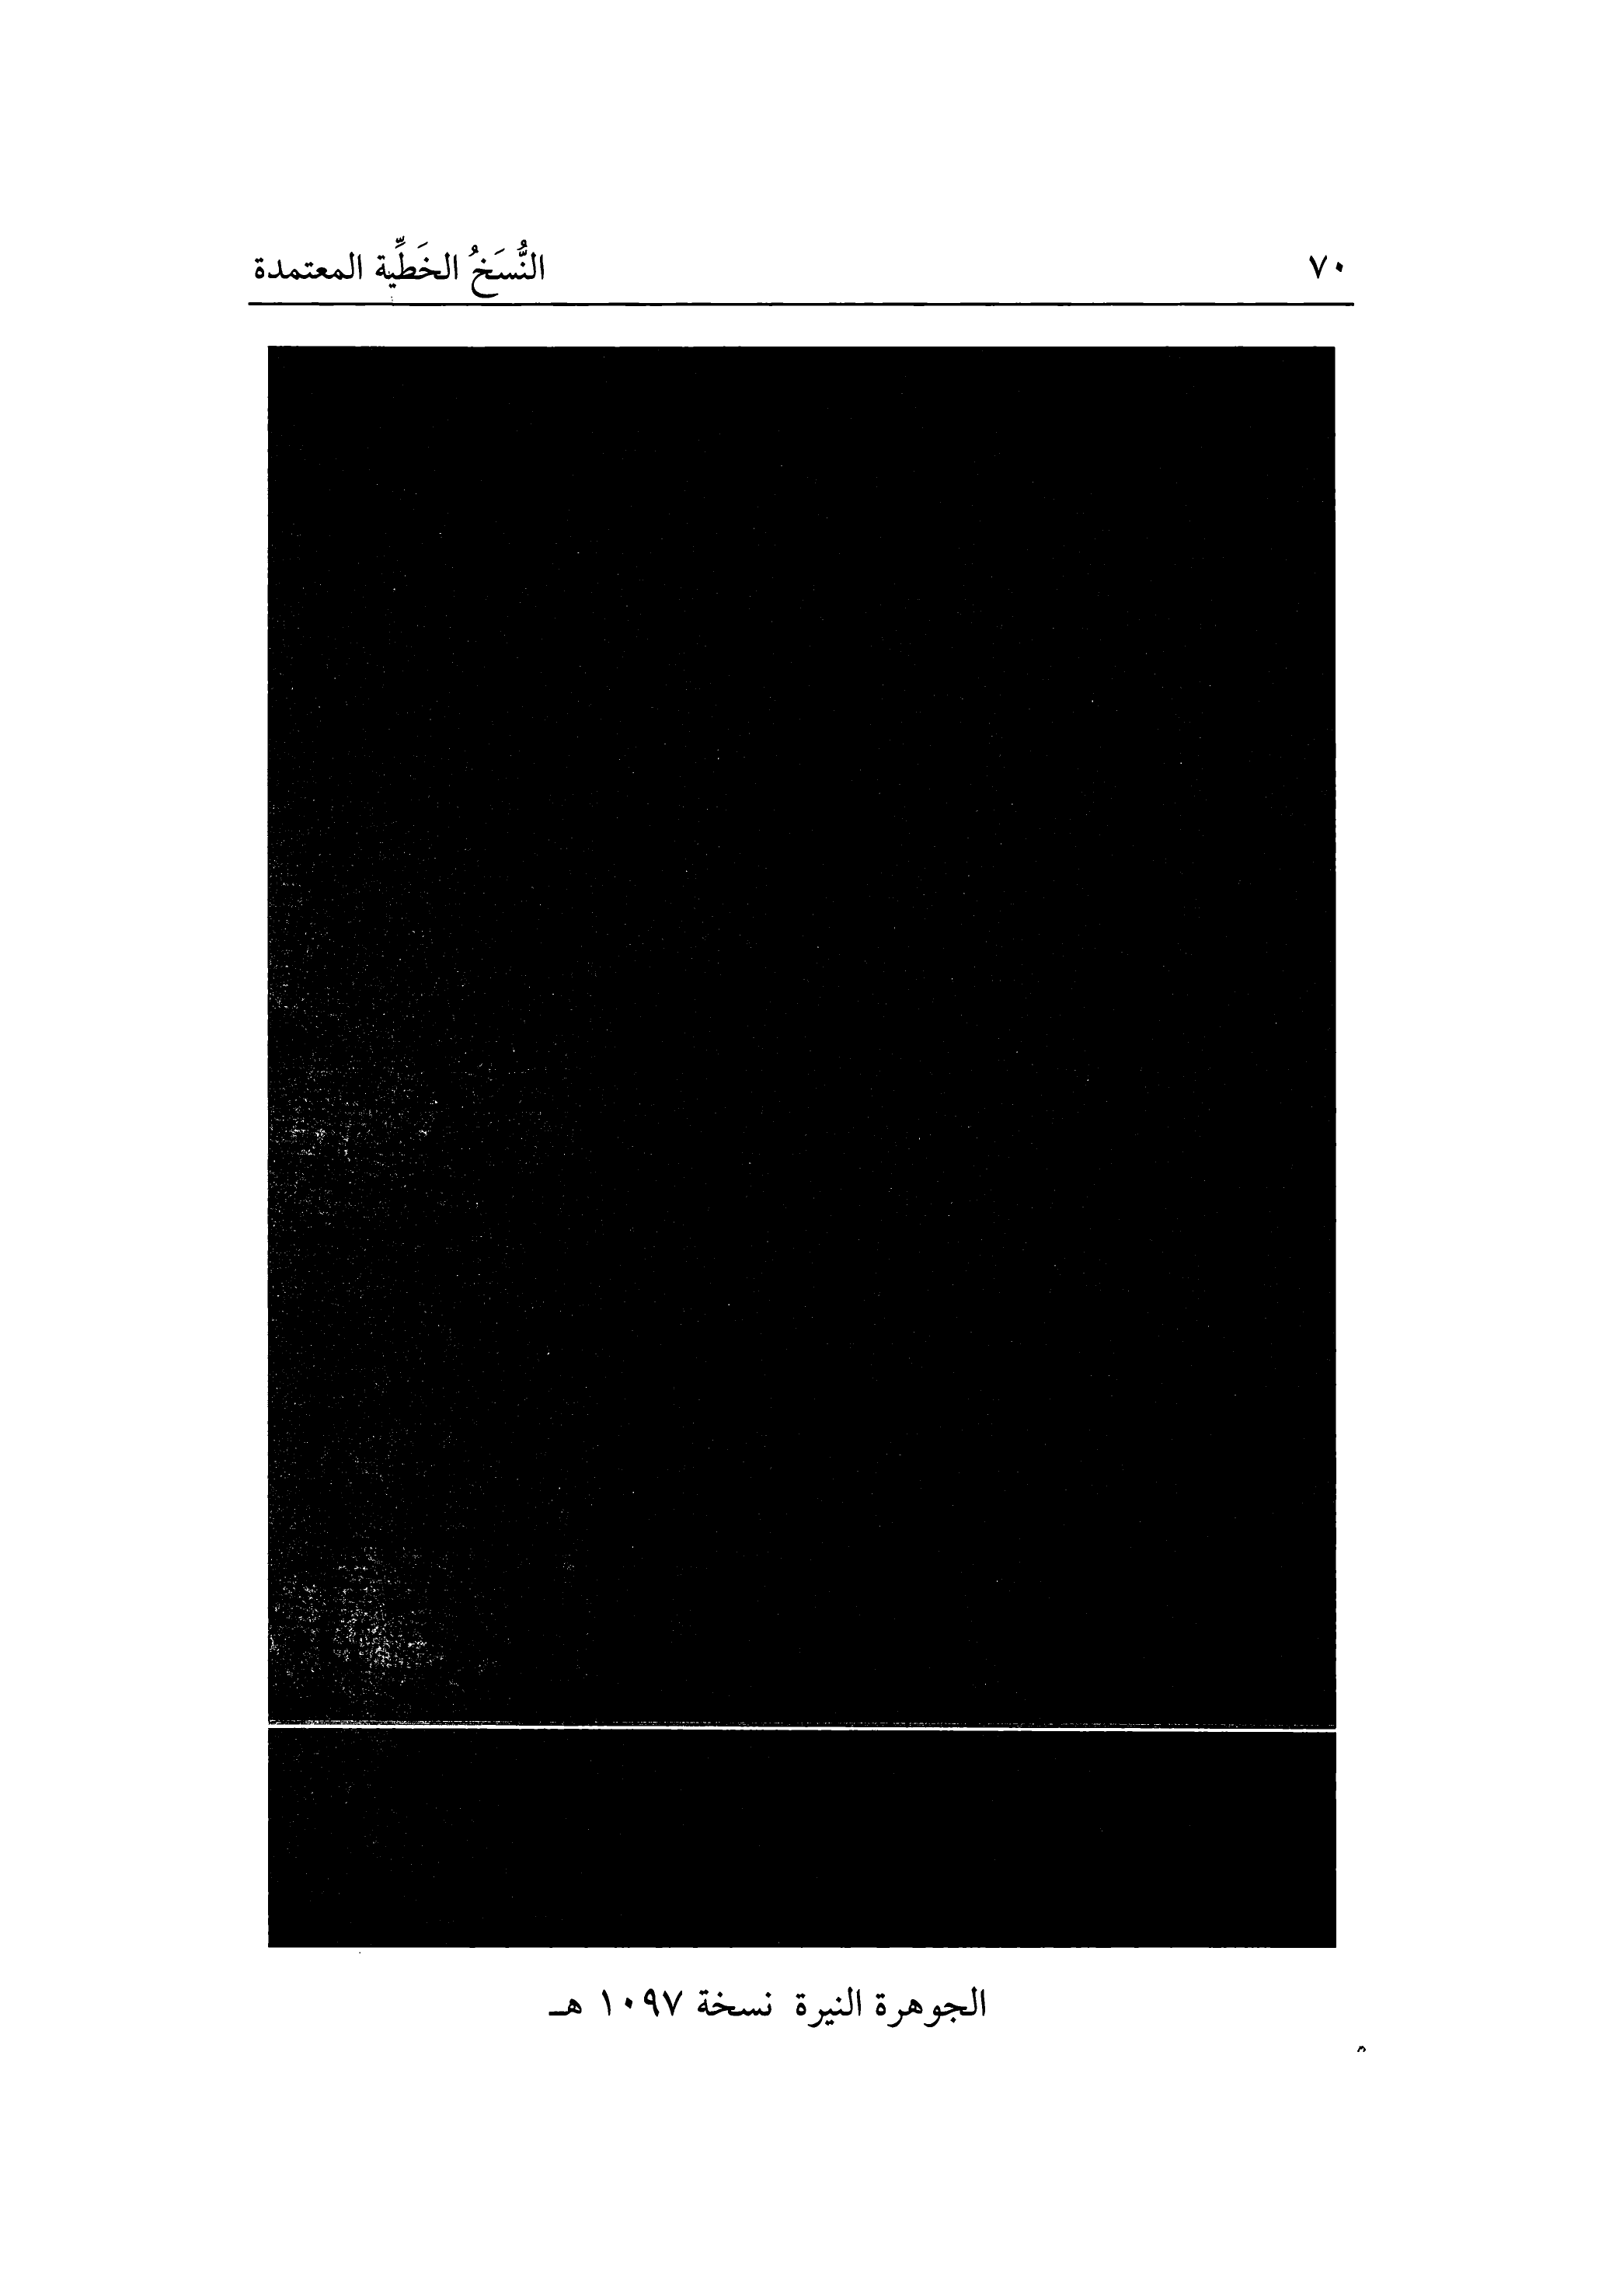 ٧٠ النُّسَخُ الخَطِّية المعتمدة
الجوهرة النيرة نسخة ١٠٩٧ هـ